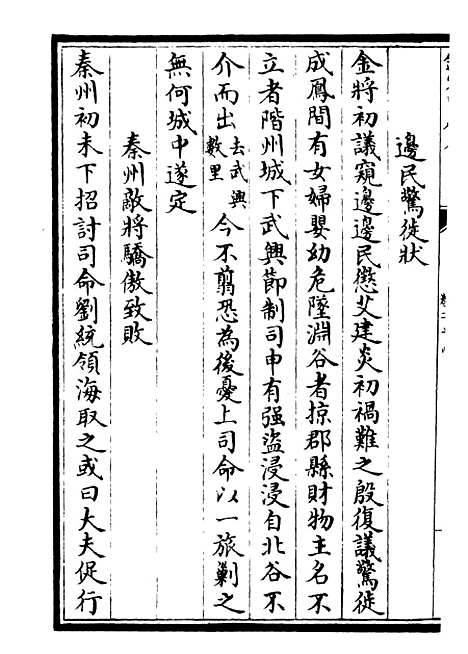 邊民驚徙狀
金將初議窺邊邊民懲艾建炎初禍難之殷復議驚徙
成鳳間有女婦嬰幼危墜淵谷者掠郡縣財物主名不
立者階州城下武興節制司申有强盜浸浸自北谷不
介而出去武興數里今不翦恐為後憂上司命以一旅剿之
無何城中遂定
秦州敵將驕傲致敗
秦州初未下招討司命劉統領海取之或曰大夫促行